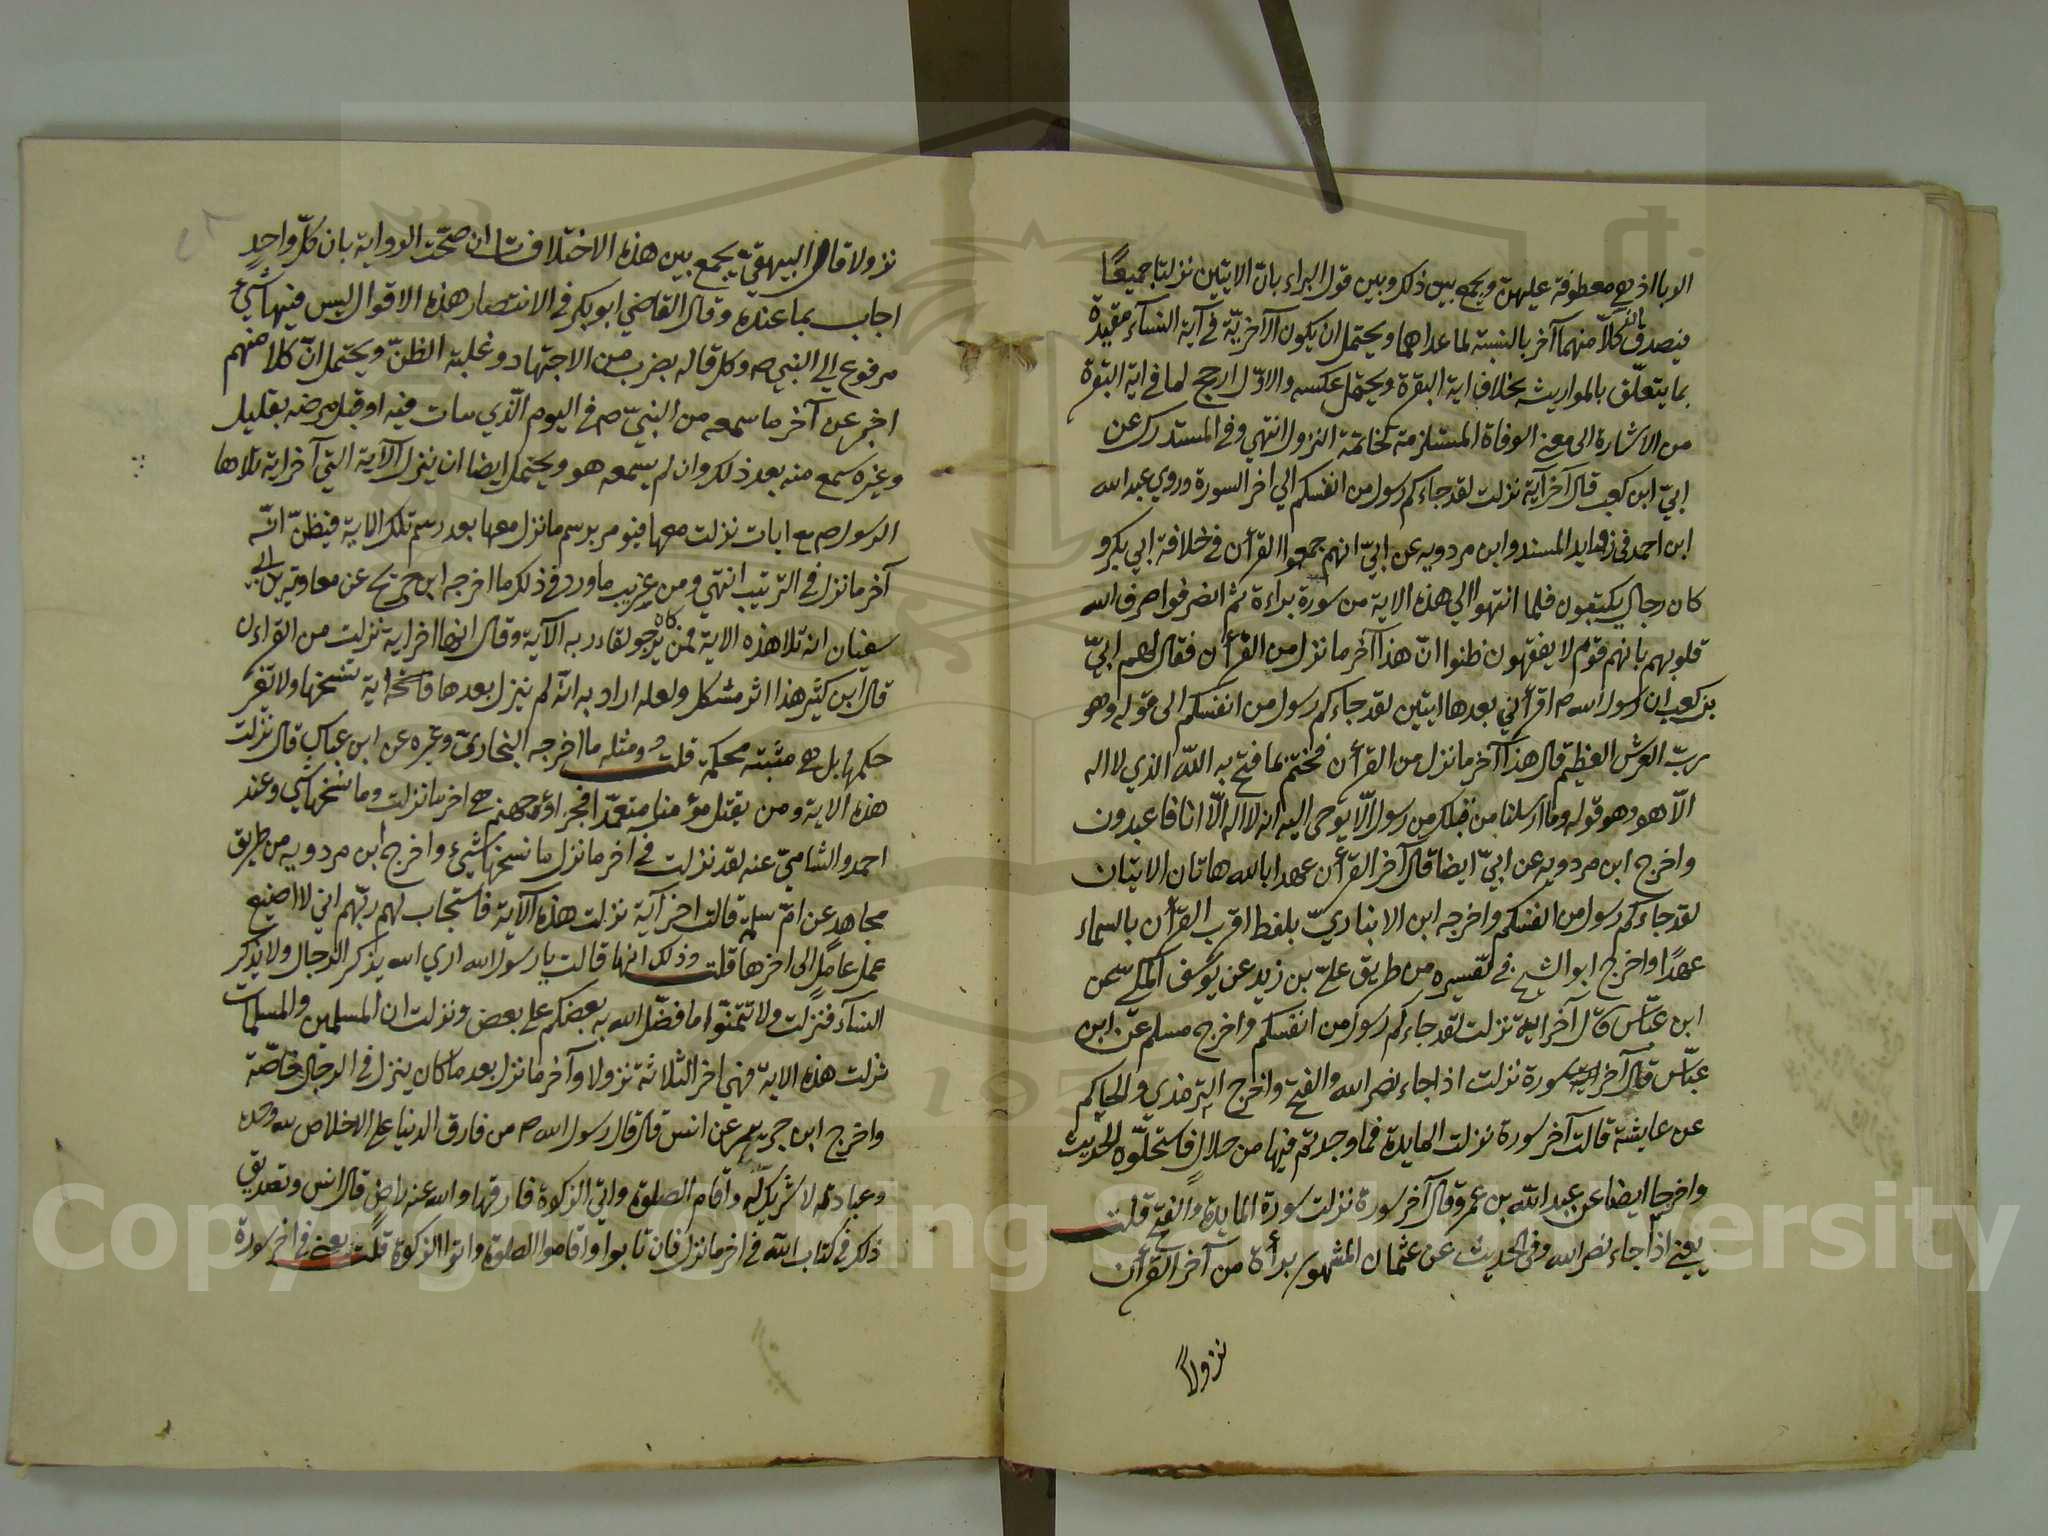 الربا اذ هي معطوفة عليهن ويجمع بين ذلك وبين قول البراء بان الايتين نزلتا جميعًا
فيصدق بان كلاّ منهما آخر بالنسبة لما عداهما ويحتمل ان يكون الآخريّة في آية النسآء مقيدة
بما يتعلّق بالمواريث بخلاف اية البقرة ويحتمل عكسه والاوّل ارجح لما في اية البقرة
من الاشارة الى معنى الوفاة المستلزمة لخاتمة النزول انتهي وفي المستدرك عن
ابيّ ابن كعب قال آخر آية نزلت لقد جاءكم رسول من انفسكم الي اخر السورة وروي عبد الله
ابن احمد في زوايد المسند وابن مردويه عن ابيّ انهم جمعوا القرآن في خلافة ابي بكر و
كان رجال يكتبون فلما انتهوا الي هذه الاية من سورة براءة ثم انصرفوا صرف الله
قلوبهم بانهم قوم لا يفقهون ظنوا انّ هذا آخر ما نزل من القرأن فقال لهم ابيّ
بن كعب ان رسول الله ص اقرأني بعدها ايتين لقد جاءكم رسول من انفسكم الى قوله وهو
ربّ العرش العظيم قال هذا آخر ما نزل من القرأن فختم بما فتح به اللّه الذي لا اله
الاّ هو وهو قوله وما ارسلنا من قبلك من رسول الاّ يوحى اليه انه لا اله الاّ انا فاعبدون
واخرج ابن مردويه عن ابيّ ايضا قال آخر القرأن عهدا بالله هاتان الايتان
لقد جاءكم رسول من انفسكم واخرجه ابن الانباريّ بلفظ اقرب القرأن بالسماء
عهدًا واخرج ابو الشيخ في تفسيره من طريق عليّ بن زيد عن يوسف المكي عن
ابن عبّاس قال آخر اية نزلت لقد جاءكم رسول من انفسكم واخرج مسلم عن ابن
عبّاس قال آخر سورة نزلت اذا جاء نصر الله والفتح واخرج الترمذي والحاكم
عن عايشة قالت آخر سورة نزلت المايدة فما وجدتم فيها من حلال فاستحلّوه الحديث
واخرجا ايضا عن عبد اللّه بن عمرو قال آخر سورة نزلت سورة المايدة والفتح قلت
يعني اذا جاء نصر الله وفي الحديث عن عثمان المشهور برأة من آخر القرآن
نزولاً
نزولا قال البيهقيّ يجمع بين هذه الاختلافات ان صحّت الرواية بان كلّ واحدٍ
اجاب بما عنده وقال القاضي ابو بكر في الانتصار هذه الاقوال ليس فيها شيْء
مرفوع الي النبي ص وكل قاله بضرب من الاجتهاد وغلبة الظنّ ويحتمل انّ كلاّ منهم
اخبر عن آخر ما سمعه من النبيّ ص في اليوم الّذي مات فيه او قبل مرضه بقليل
وغيره سمع منه بعد ذلك وان لم يسمعه هو ويحتمل ايضا ان ينزل الآية التي آخر اية تلاها
الرسول ص مع ايات نزلت معها فيومر برسم ما نزل معها بعد رسم تلك الاية فيظنّ انّه
آخر ما نزل في الترتيب انتهي ومن غريب ما ورد في ذلك ما اخرجه ابن جرير عن معاوية بن ابي
سفيان انه تلا هذه الاية فمن كان يرجو لقاء ربه الآية وقال انها اخر اية نزلت من القراءن
قال ابن كثير هذا اثر مشكل ولعله اراد به انّه لم ينزل بعدها اية تنسخها ولا تغير
حكمها بل هي مثبته محكمة قلت ومثله ما اخرجه البخاريّ وغيره عن ابن عباس قال نزلت
هذه الاية ومن يقتل مؤمنا متعمّدا فجزاؤه جهنم هي اخر ما نزلت وما نسخها شي وعند
احمد والنسائيّ عنه لقد نزلت في اخر ما نزل ما نسخها شيْء واخرج ابن مردويه من طريق
مجاهد عن امّ سلمة قالت اخر آية نزلت هذه الآية فاستجاب لهم ربّهم اني لا اضيع
عمل عاملٍ الى اخرها قلت وذلك انها قالت يا رسول الله اري الله يذكر الرجال ولا يذكر
النسآء فنزلت ولا تتمنّوا ما فضّل الله به بعضكم علي بعض ونزلت ان المسلمين والمسلمات
نزلت هذه الاية فهي اخر الثلاثة نزولا وآخر ما نزل بعد ما كان ينزل في الرجال خاصّة
واخرج ابن جرير عن انس قال قال رسول الله ص من فارق الدنيا علي الاخلاص لله وحده
وعبادته لا شريك له واقام الصلوة واتي الزكوة فارقها والله عنه راضٍ قال انس وتصديق
ذلك في كتاب اللّه في اخر ما نزل فان تابوا واقاموا الصلوة واتوا الزكوة قلت يعني في اخر سورة
Copyright © King Saud University